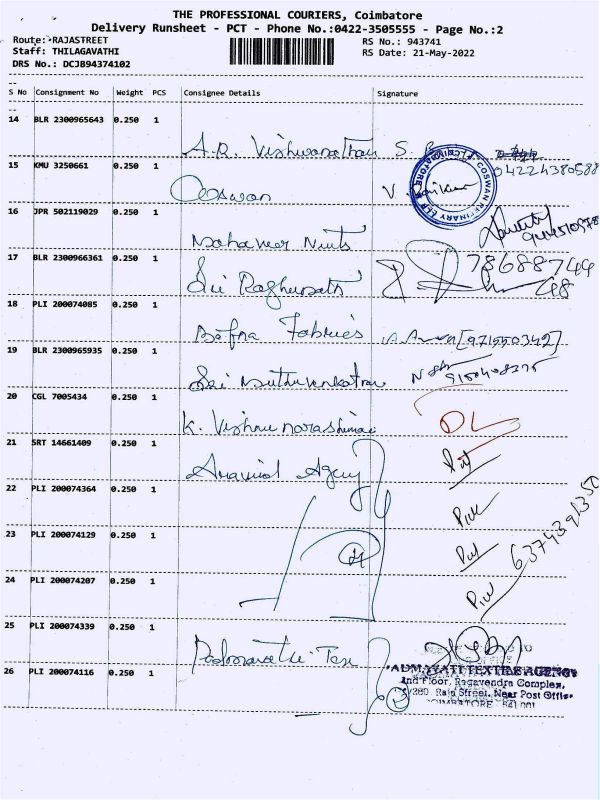 THE PROFESSIONAL COURIERS, Coimbatore
Delivery Runsheet - PCT - Phone No.:0422-3505555 - Page No.:2
Route: RAJASTREET
Staff: THILAGAVATHI
DRS No.: DCJB94374102
RS No.: 943741
RS Date: 21-May-2022
S No Consignment No Weight PCS Consignee Details Signature
14 BLR 2300965643 0.250 1
A.R. Vishwanathan S.
04224380588
15 KMU 3250661 0.250 1
Coswan
COSWAN REFINARY LLP COIMBATORE
16 JPR 502119029 0.250 1
Mahaveer Nuts
17 BLR 2300966361 0.250 1
Sri Raghunath
78688744
48
18 PLI 200074085 0.250 1
Bafna Fabrics
19 BLR 2300965935 0.250 1
Sri Muthuvenkatram
20 CGL 7005434 0.250 1
K. Vishnu narashimai
DL
21 SRT 14661409 0.250 1
Aravind Agency
22 PLI 200074364 0.250 1
23 PLI 200074129 0.250 1
6374391350
24 PLI 200074207 0.250 1
25 PLI 200074339 0.250 1
Padmavathi Tex
26 PLI 200074116 0.250 1
ADMAVATI TEXTILE AGENCY
2nd Floor, Ragavendra Complex,
5/280 Raja Street, Near Post Office
COIMBATORE - 641 001